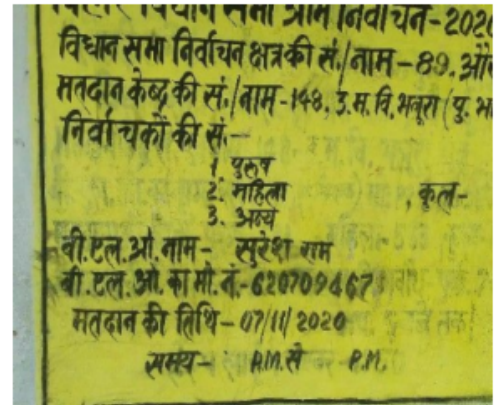 बिहार विधान सभा आम निर्वाचन-2020
विधान सभा निर्वाचन क्षेत्र की सं./नाम-89. औ
मतदान केन्द्र की सं./नाम-148, उ.म.वि. भवूरा (पु. भ
निर्वाचकों की सं.-
1. पुरुष
2. महिला , कुल-
3. अन्य
बी.एल.ओ. नाम- सुरेश राम
बी.एल.ओ. का मो. नं.-6207094673
मतदान की तिथि-07/11/2020
समय- A.M. से P.M.